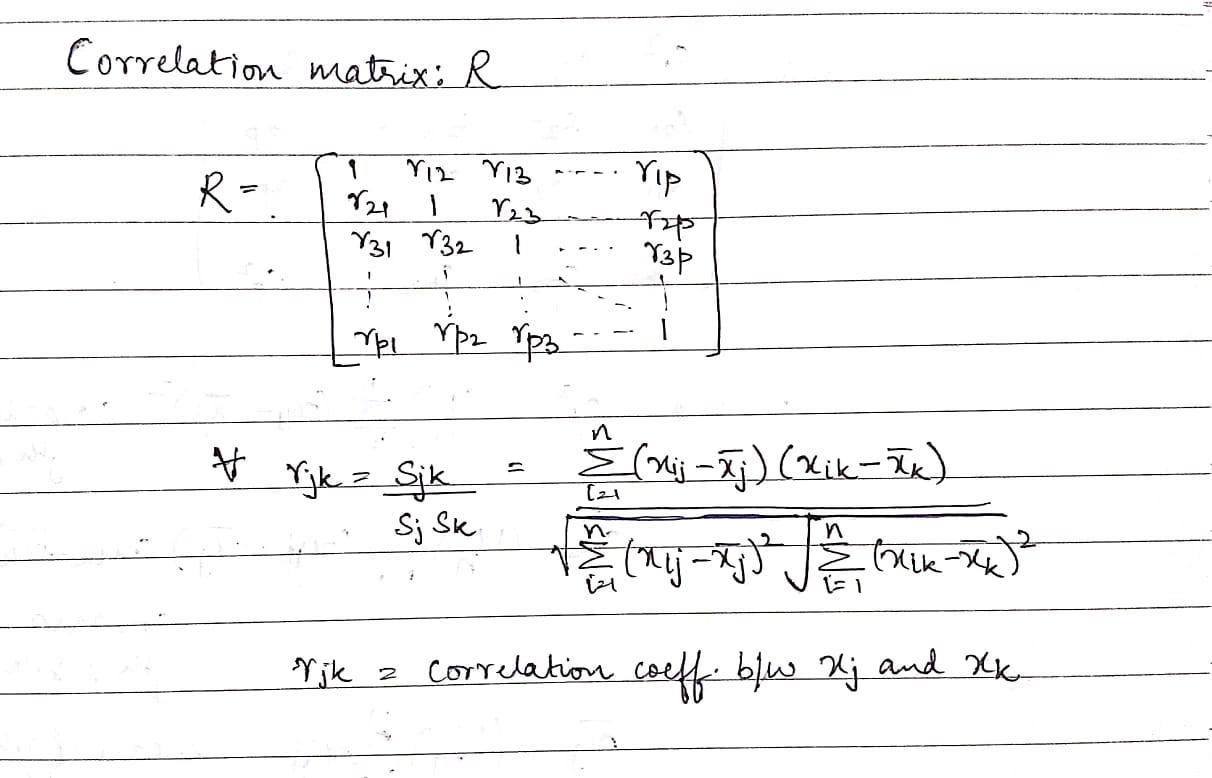 Correlation matrix: R
R = [ 1 r12 r13 ----- r1p
r21 1 r23 ----- r2p
r31 r32 1 ---- r3p
⋮ ⋮ ⋮ ⋱ ⋮
rp1 rp2 rp3 ---- 1 ]
∀ rjk = Sjk / Sj Sk = Σ_{i=1}^{n} (xij − x̄j) (xik − x̄k) / √Σ_{i=1}^{n} (xij − x̄j)² √Σ_{i=1}^{n} (xik − x̄k)²
rjk = correlation coeff. b/w xj and xk